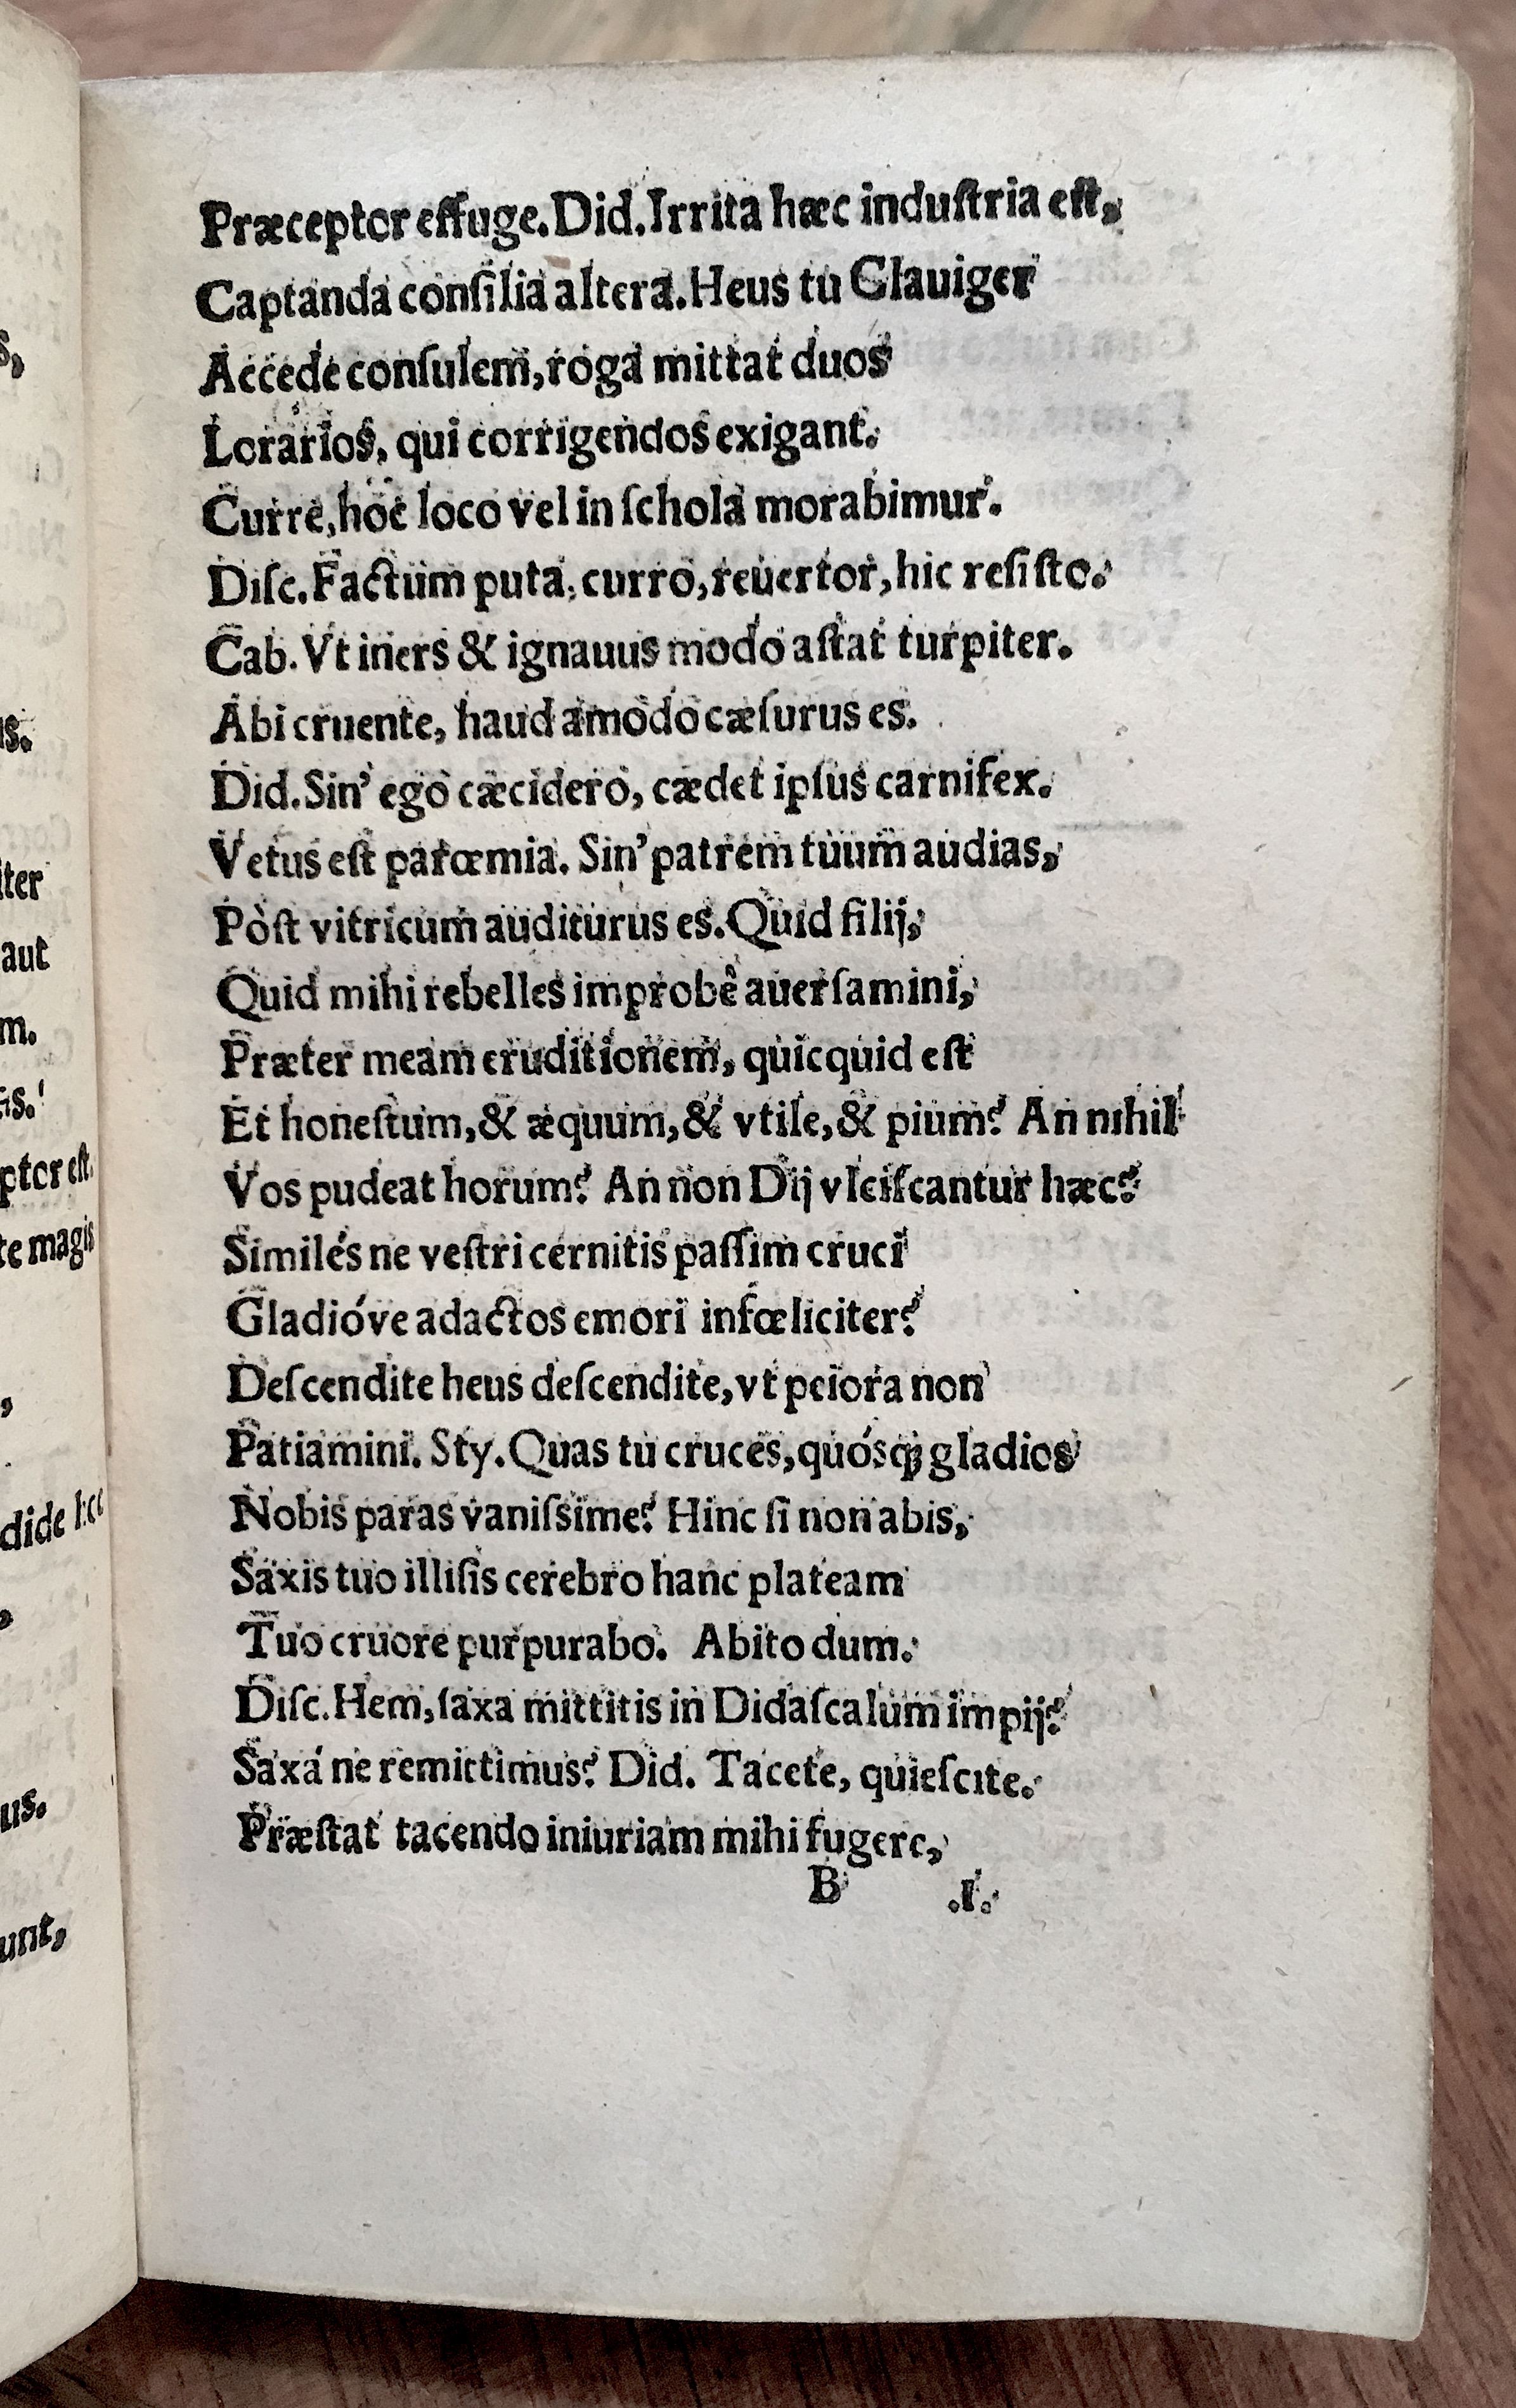 Præceptor effuge. Did. Irrita hæc induſtria eſt,
Captanda conſilia altera. Heus tu Clauiger
Accede conſulem, roga mittat duos
Lorarios, qui corrigendos exigant.
Curre, hoc loco vel in ſchola morabimur.
Diſc. Factum puta, curro, reuertor, hic reſiſto.
Cab. Vt iners & ignauus modo aſtat turpiter.
Abi cruente, haud amodo cæſurus es.
Did. Sin' ego cæcidero, cædet ipſus carnifex.
Vetus eſt parœmia. Sin' patrem tuum audias,
Pòſt vitricum auditurus es. Quid filij,
Quid mihi rebelles improbê auerſamini,
Præter meam eruditionem, quicquid eſt
Et honeſtum, & æquum, & vtile, & pium? An nihil
Vos pudeat horum? An non Dij vlciſcantur hæc?
Similés ne veſtri cernitis paſſim cruci
Gladióve adactos emori infœliciter?
Deſcendite heus deſcendite, vt peiora non
Patiamini. Sty. Quas tu cruces, quósꝗ gladios
Nobis paras vaniſsime? Hinc ſi non abis,
Saxis tuo illiſis cerebro hanc plateam
Tuo cruore purpurabo. Abito dum.
Diſc. Hem, ſaxa mittitis in Didaſcalum impij?
Saxá ne remittimus? Did. Tacete, quieſcite.
Præſtat tacendo iniuriam mihi fugere,
B .I.
s,
us.
iter
aut
m.
is.
ptor eſt.
te magis
,
.
dide
,
us.
unt,